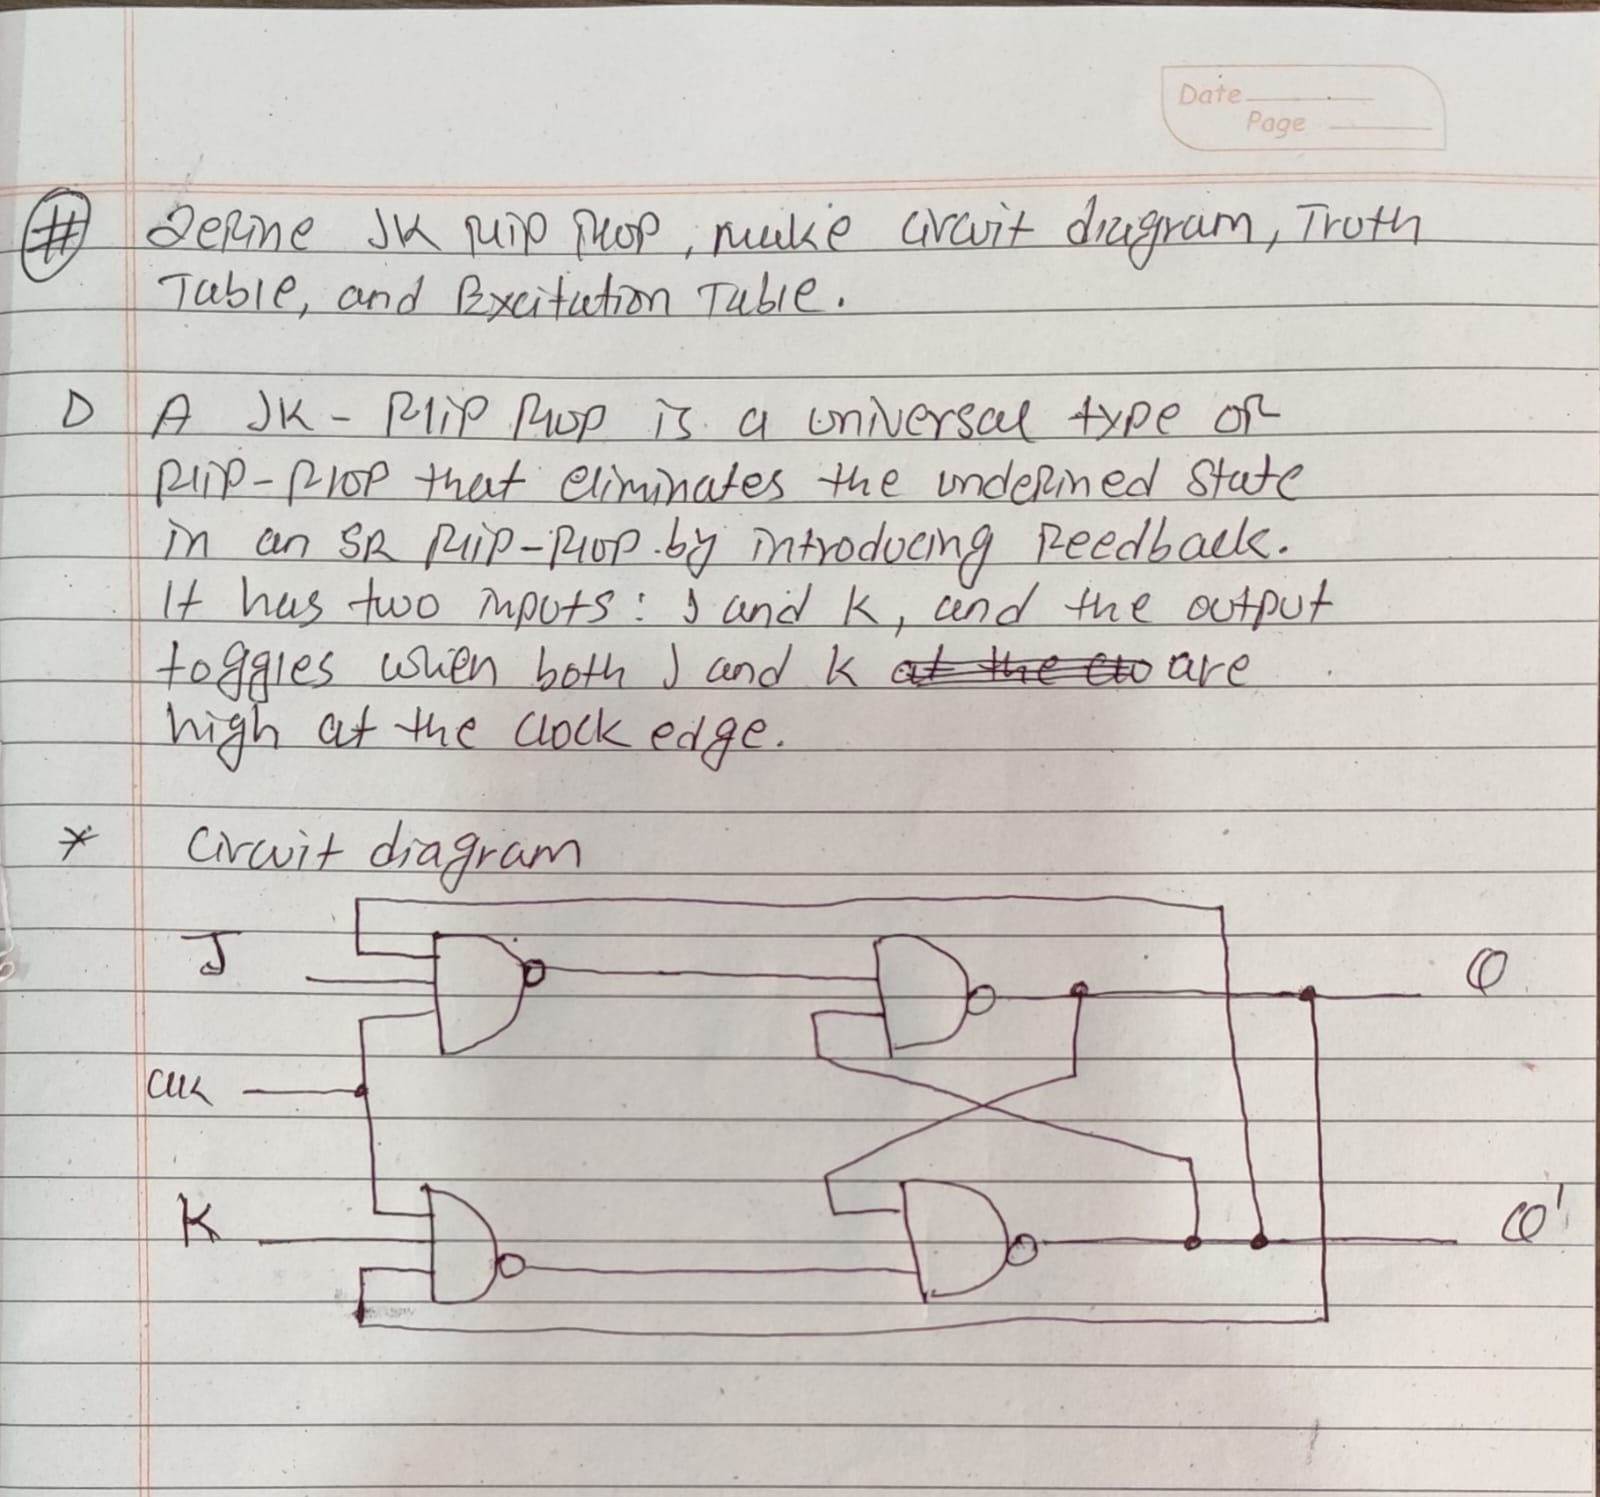 Date
Page
# Define JK flip flop, make circuit diagram, Truth
Table, and Excitation Table.
D A JK - flip flop is a universal type of
flip-flop that eliminates the undefined state
in an SR flip-flop by introducing feedback.
It has two inputs: J and K, and the output
toggles when both J and K are
high at the clock edge.
* Circuit diagram
J
Q
CLK
K
Q'